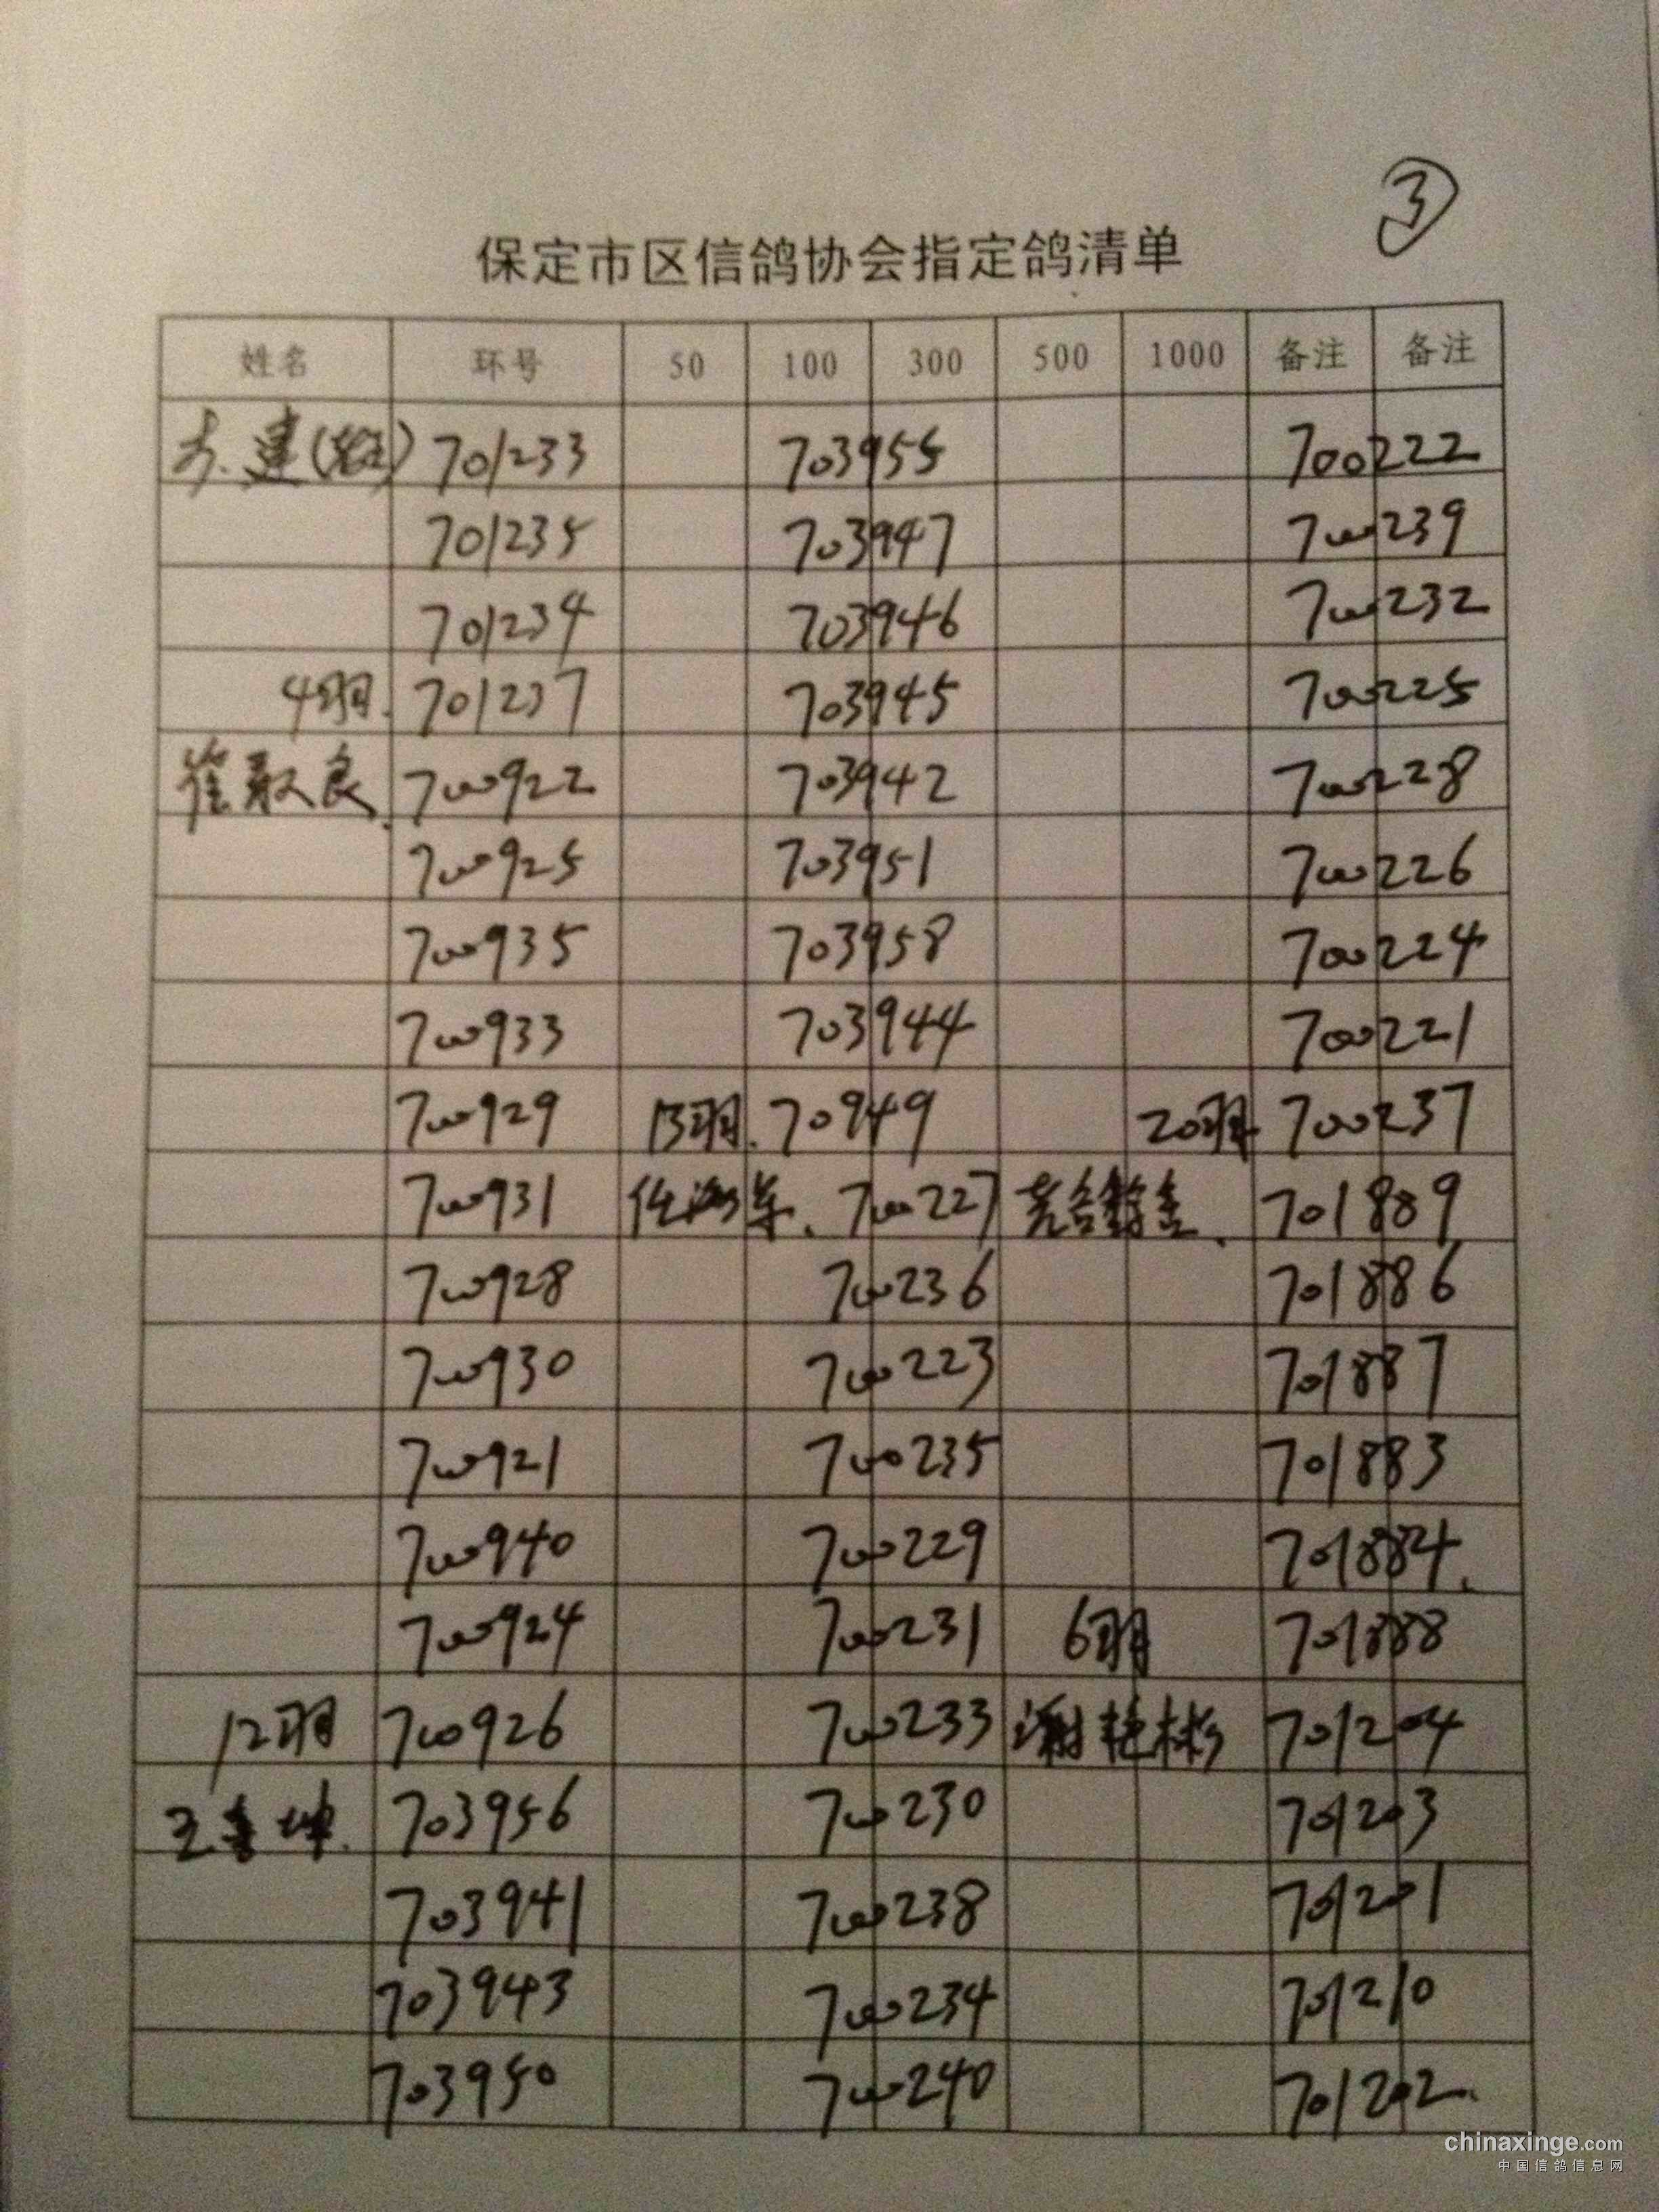 ③
保定市区信鸽协会指定鸽清单
姓名 环号 50 100 300 500 1000 备注 备注
701233 703955 700222
701235 703947 700239
701234 703946 700232
4羽. 701237 703945 700225
崔 良 700922 703942 700228
700925 703951 700226
700935 703958 700224
700933 703944 700221
700929 13羽. 70949 20羽 700237
700931 任海军、 700227 701889
700928 700236 701886
700930 700223 701887
700921 700235 701883
700940 700229 701884.
700924 700231 6羽 701888
12羽 700926 700233 谢艳彬 701204
王 坤. 703956 700230 701203
703941 700238 701201
703943 700234 701210
703950 700240 701202.
chinaxinge.com
中国信鸽信息网